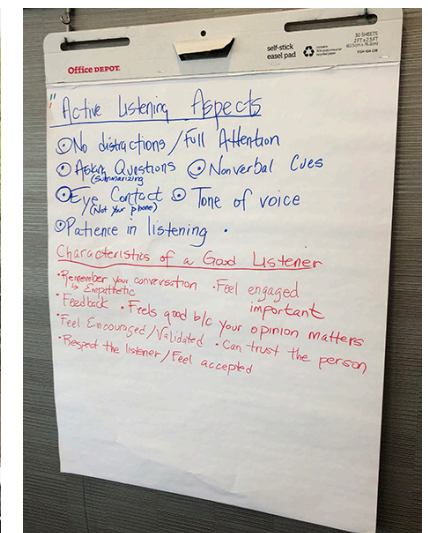 Office DEPOT.
self-stick
easel pad
30 SHEETS
" Active Listening Aspects
No distractions / Full Attention
Asking Questions Nonverbal Cues
(Summarizing
Eye Contact Tone of voice
(Not your phone)
Patience in listening .
Characteristics of a Good Listener
• Remember your conversation • Feel engaged
↳ Empathetic important
• Feedback • Feels good b/c your opinion matters
• Feel Encouraged / Validated • Can trust the person
• Respect the listener / Feel accepted